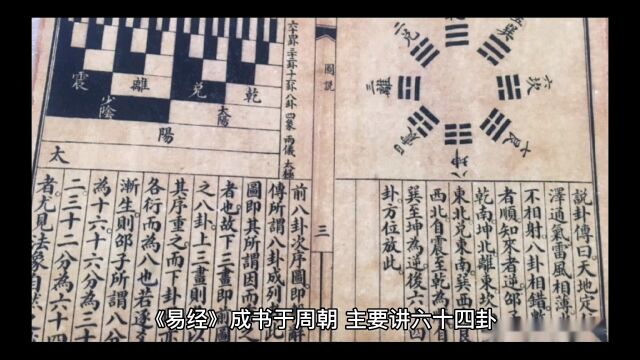 六十四卦 三十二 十六 八卦 四象 兩儀 太極
震 離 兌 乾
少陰 太陽
陽
太
圖說
三
說卦傳曰天地定
澤通氣雷風相薄
不相射八卦相錯
者順知來者逆邵子
乾南坤北離東坎
東北兌東南巽西
西北自震至乾為
巽至坤為逆後六
卦方位放此
前八卦次序圖即
傳所謂八卦成列此
圖即其所謂因而
者也故下三畫即
之八卦上三畫則
其序重之而下卦
各衍而為八也若逐
漸生則邵子所謂八分
為十六十六分為三十
二三十二分為六十四
者尤見法象自然之
《易经》成书于周朝 主要讲六十四卦